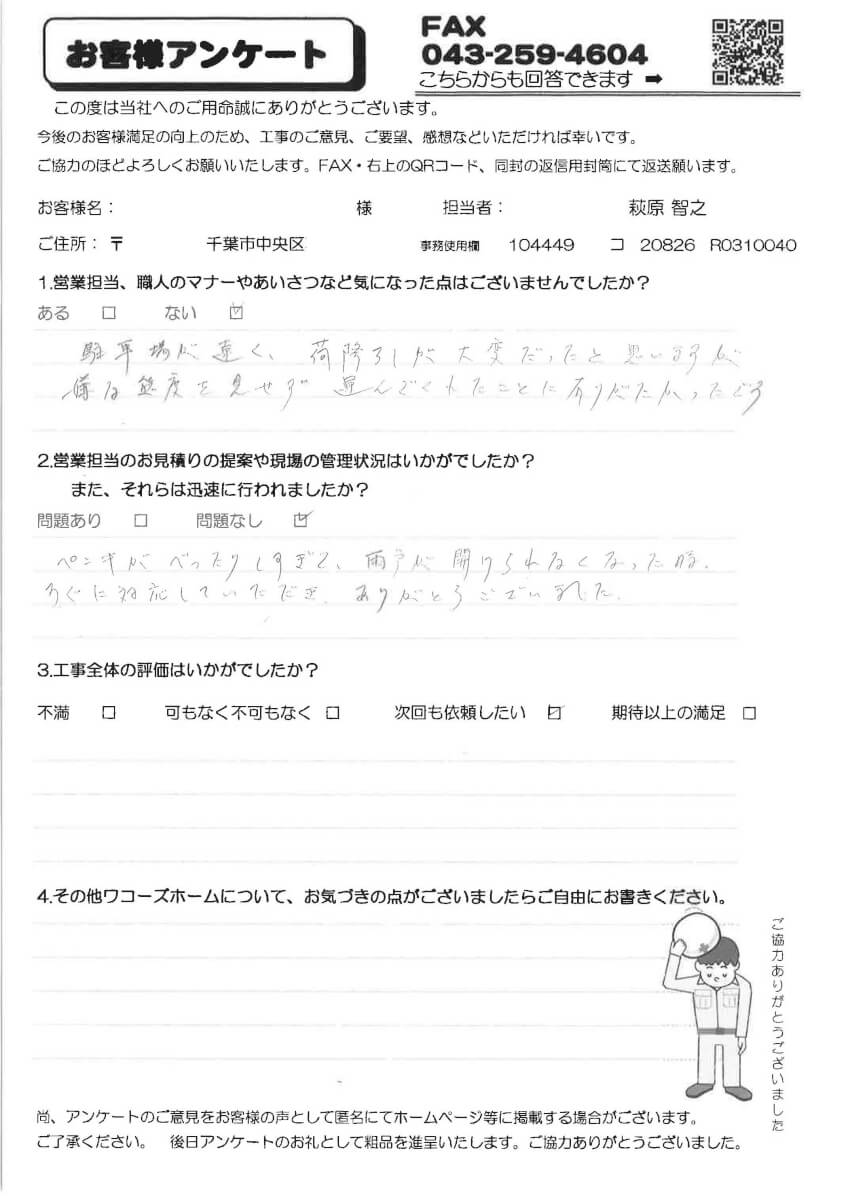 お客様アンケート
FAX
043-259-4604
こちらからも回答できます ➡
この度は当社へのご用命誠にありがとうございます。
今後のお客様満足の向上のため、工事のご意見、ご要望、感想などいただければ幸いです。
ご協力のほどよろしくお願いいたします。FAX・右上のQRコード、同封の返信用封筒にて返送願います。
お客様名： 様 担当者： 萩原 智之
ご住所：〒 千葉市中央区 事務使用欄 104449 コ 20826 R0310040
1.営業担当、職人のマナーやあいさつなど気になった点はございませんでしたか？
ある □ ない ☑
駐車場が遠く、荷降ろしが大変だったと思いますが
嫌な態度を見せず 運んでくれたことに有りがたかったです
2.営業担当のお見積りの提案や現場の管理状況はいかがでしたか？
また、それらは迅速に行われましたか？
問題あり □ 問題なし ☑
ペンキがべったりしすぎて、雨戸が開けられなくなった時、
すぐに対応していただき、ありがとうございました。
3.工事全体の評価はいかがでしたか？
不満 □ 可もなく不可もなく □ 次回も依頼したい ☑ 期待以上の満足 □
4.その他ワコーズホームについて、お気づきの点がございましたらご自由にお書きください。
ご協力ありがとうございました
尚、アンケートのご意見をお客様の声として匿名にてホームページ等に掲載する場合がございます。
ご了承ください。 後日アンケートのお礼として粗品を進呈いたします。ご協力ありがとうございました。